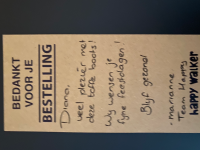 BEDANKT
VOOR JE
BESTELLING
Diana,
veel plezier met
deze toffe boots!
Wij wensen je
fijne feestdagen!
Blijf gezond
- marianne
Team Happy
HAPPY WALKER